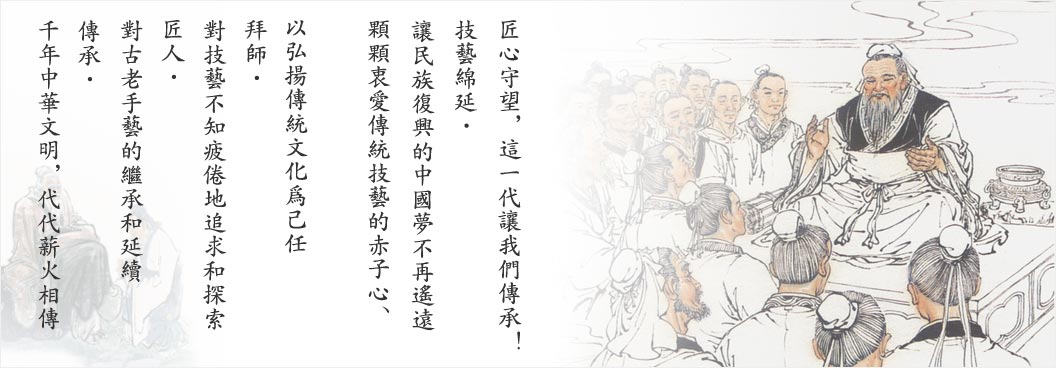 千年中華文明，代代薪火相傳
傳承·
對古老手藝的繼承和延續
匠人·
對技藝不知疲倦地追求和探索
拜師·
以弘揚傳統文化爲己任
顆顆衷愛傳統技藝的赤子心、
讓民族復興的中國夢不再遙遠
技藝綿延·
匠心守望，這一代讓我們傳承！